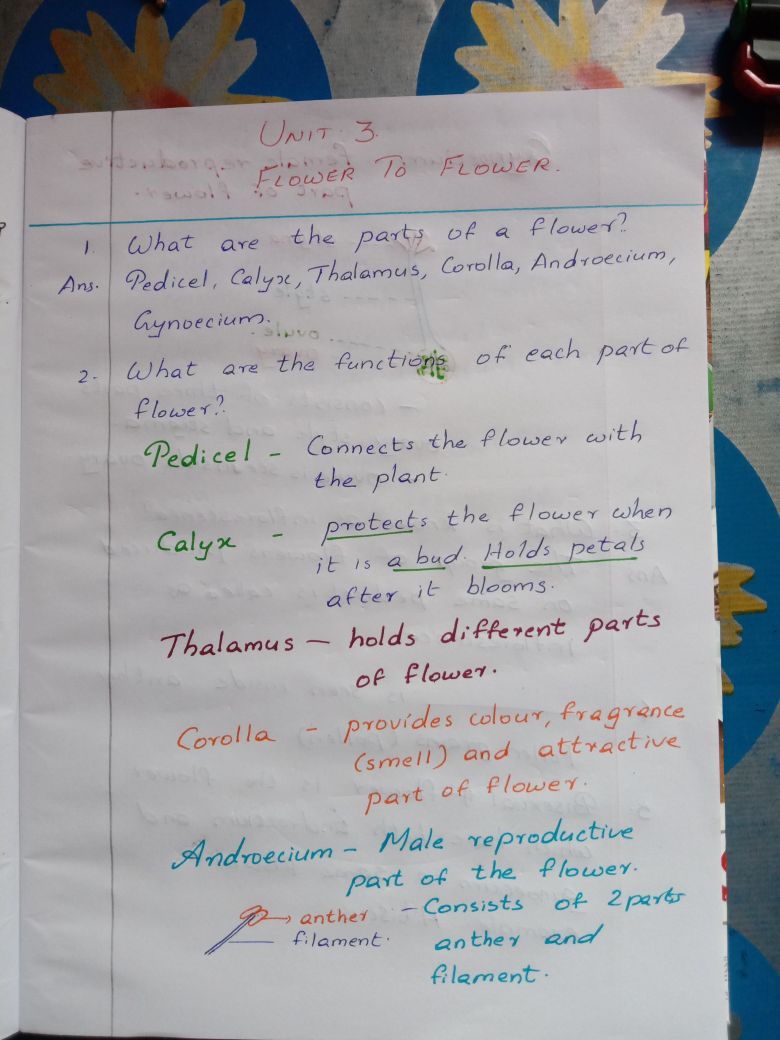 UNIT 3.
FLOWER TO FLOWER.
1. What are the parts of a flower?
Ans. Pedicel, Calyx, Thalamus, Corolla, Androecium,
Gynoecium.
2. What are the functions of each part of
flower?
Pedicel - Connects the flower with
the plant.
Calyx - protects the flower when
it is a bud. Holds petals
after it blooms.
Thalamus - holds different parts
of flower.
Corolla - provides colour, fragrance
(smell) and attractive
part of flower.
Androecium - Male reproductive
part of the flower.
anther - Consists of 2 parts
filament. anther and
filament.